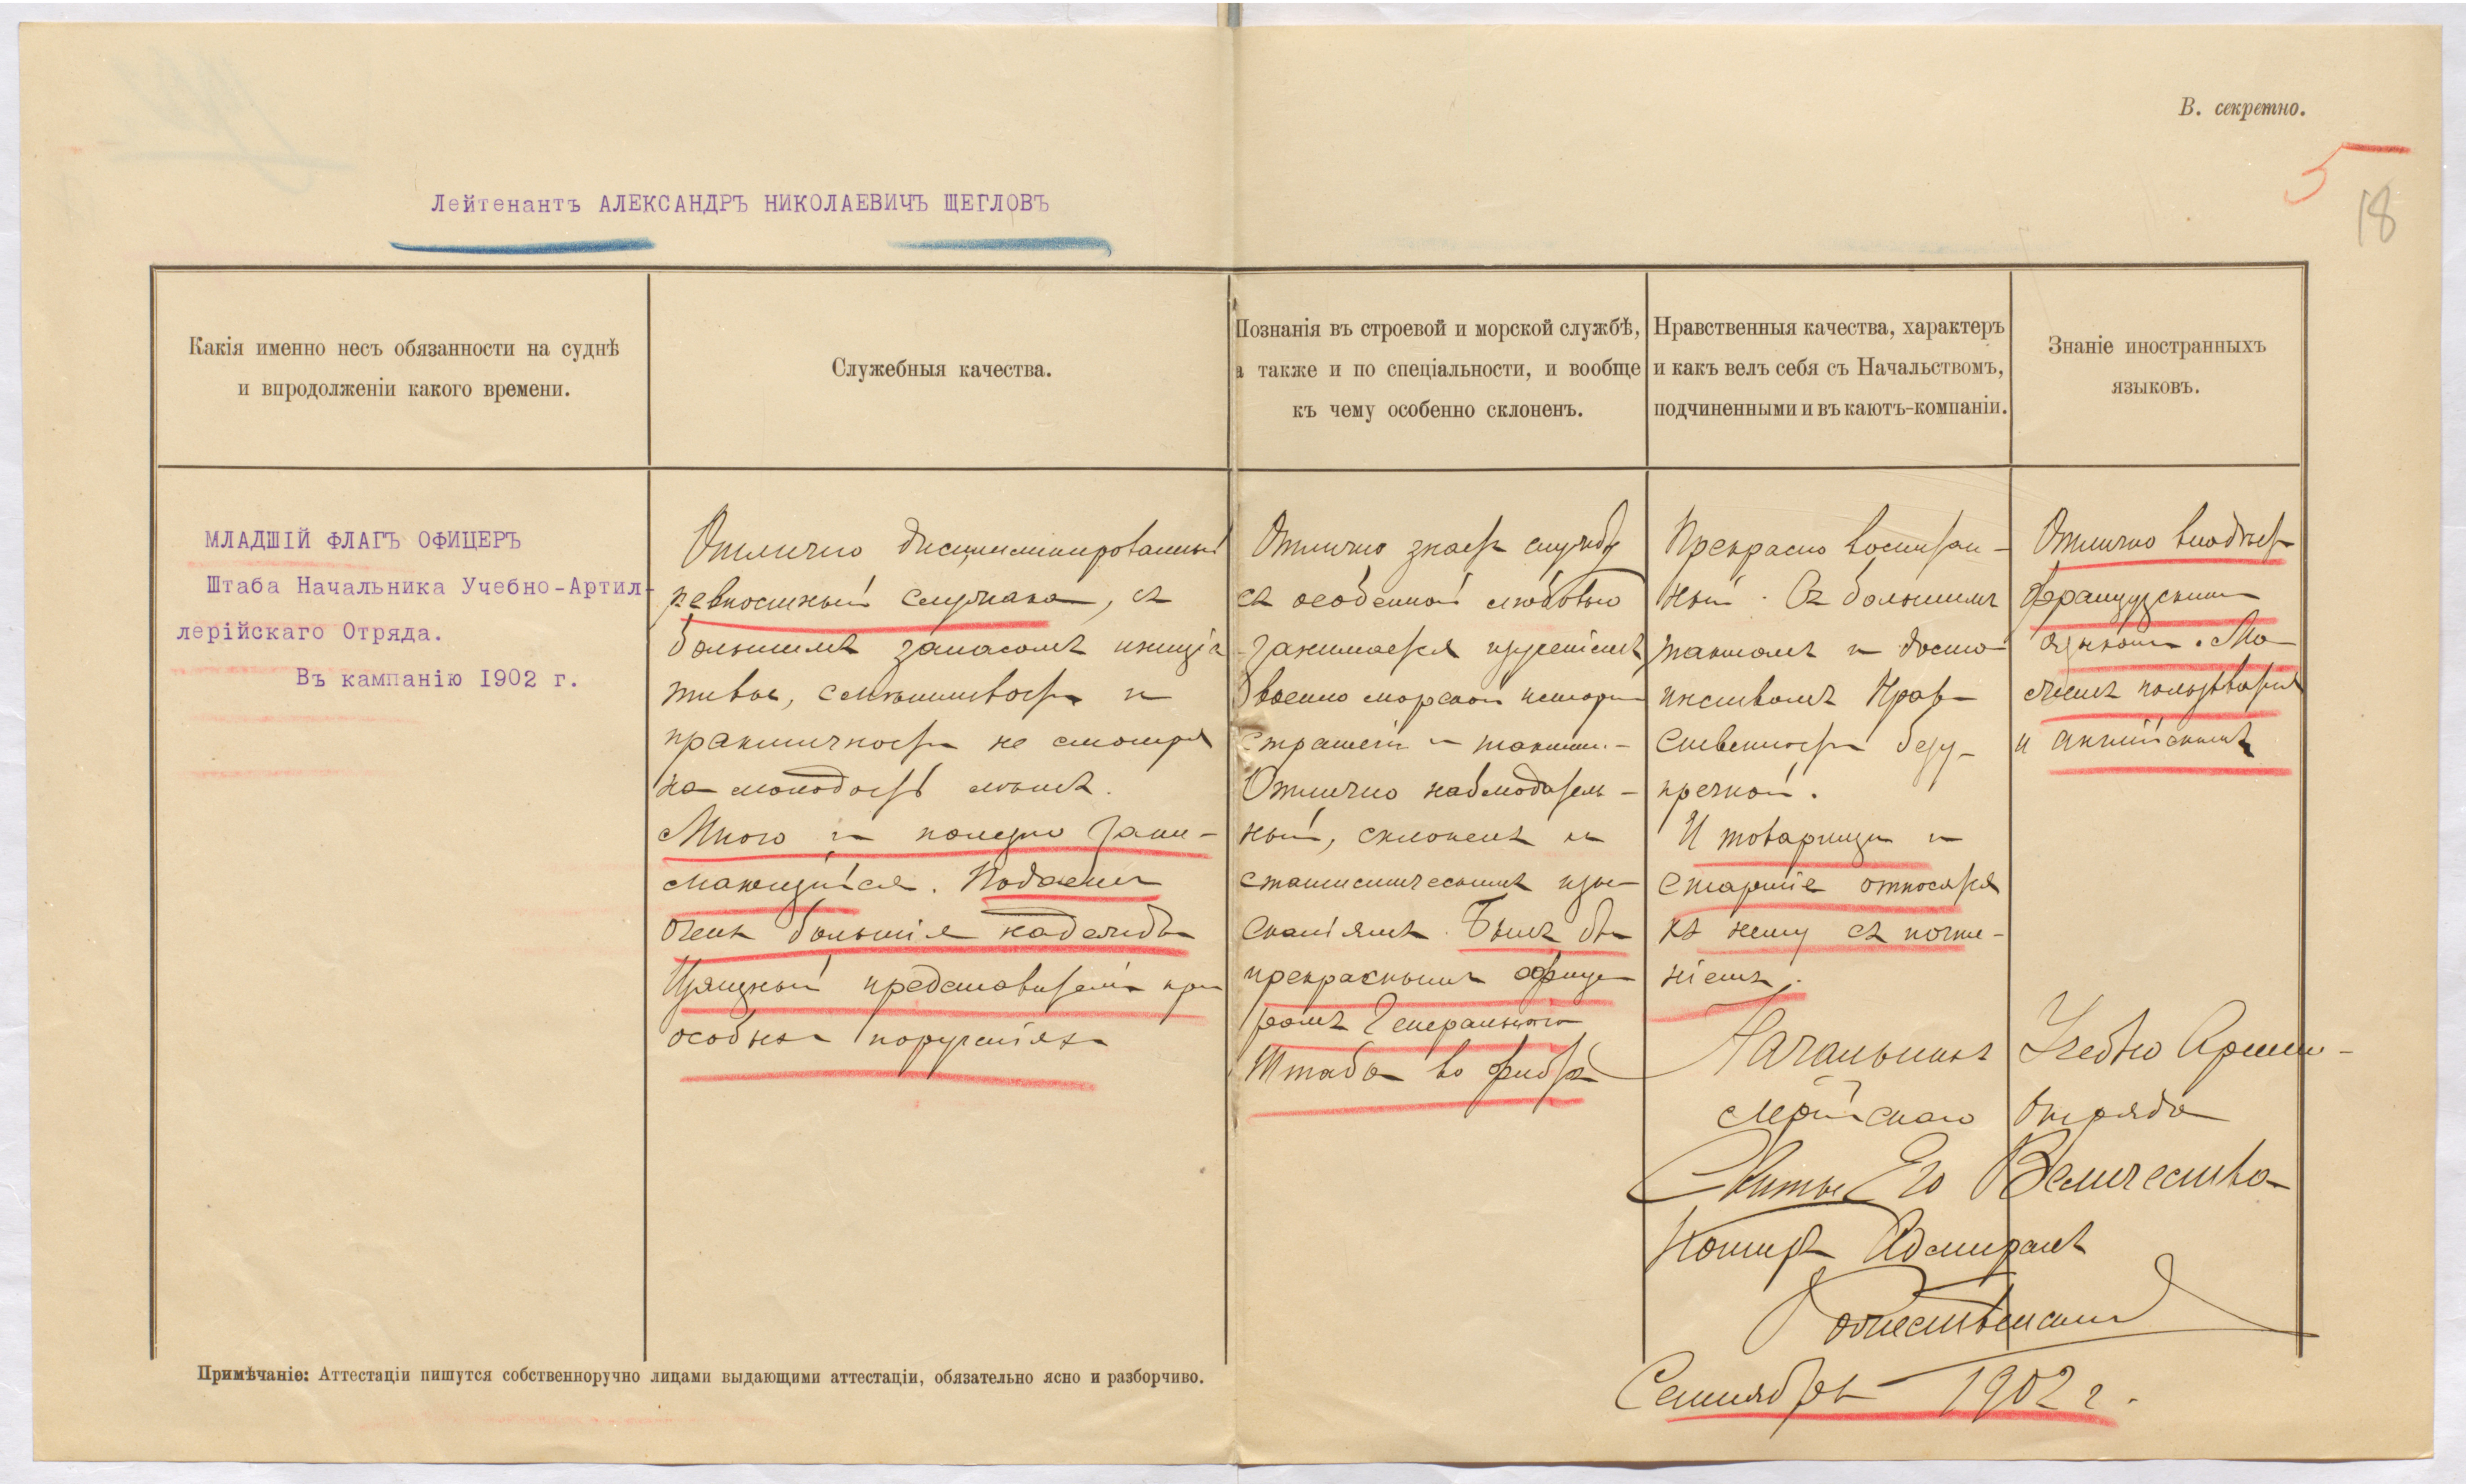 В. секретно.
5
18
Лейтенантъ АЛЕКСАНДРЪ НИКОЛАЕВИЧЪ ЩЕГЛОВЪ
Какія именно несъ обязанности на суднѣ
и впродолженіи какого времени.
Служебныя качества.
Познанія въ строевой и морской службѣ,
а также и по спеціальности, и вообще
къ чему особенно склоненъ.
Нравственныя качества, характеръ
и какъ велъ себя съ Начальствомъ,
подчиненными и въ каютъ-компаніи.
Знаніе иностранныхъ
языковъ.
МЛАДШІЙ ФЛАГЪ ОФИЦЕРЪ
Штаба Начальника Учебно-Артил-
лерійскаго Отряда.
Въ кампанію 1902 г.
Отлично дисциплинированный
ревностный служака, съ
большимъ запасомъ иниціа
тивы, смѣтливости и
практичности не смотря
на молодость лѣтъ.
Много и полезно зани-
мающійся. Подаетъ
очень большія надежды
Изящный представитель при
особыхъ порученіяхъ
Отлично знаетъ службу
съ особенной любовью
занимается изученіемъ
военно морской исторіи
стратегіи и тактики.-
Отлично наблюдатель-
ный, склоненъ къ
статистическимъ изы-
сканіямъ. Былъ бы
прекраснымъ офице
ромъ Генеральнаго
Штаба во флотѣ
Прекрасно воспитан-
ный. Съ большимъ
тактомъ и досто-
инствомъ. Нрав-
ственности безу-
пречной.
И товарищи и
старшіе относятся
къ нему съ почте-
ніемъ.
Отлично владѣетъ
французскимъ
языкомъ. Мо-
жетъ пользоваться
и англійскимъ
Начальникъ Учебно Артил-
лерійскаго Отряда
Свиты Его Величества
Контръ Адмиралъ
Рожественскій
Сентябрь 1902 г.
Примѣчаніе: Аттестаціи пишутся собственноручно лицами выдающими аттестаціи, обязательно ясно и разборчиво.